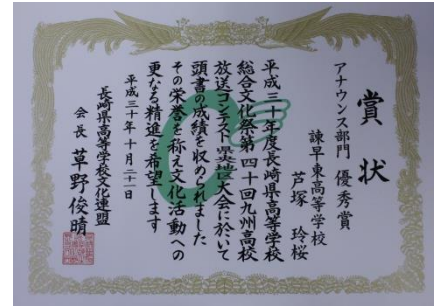 賞状
アナウンス部門 優秀賞
諫早東高等学校
芦塚 玲桜
平成三十年度長崎県高等学校
総合文化祭第四十回九州高校
放送コンテスト県選大会に於いて
頭書の成績を収められました
その栄誉を称え文化活動への
更なる精進を希望します
平成三十年十月二十一日
長崎県高等学校文化連盟
会長 草野俊晴